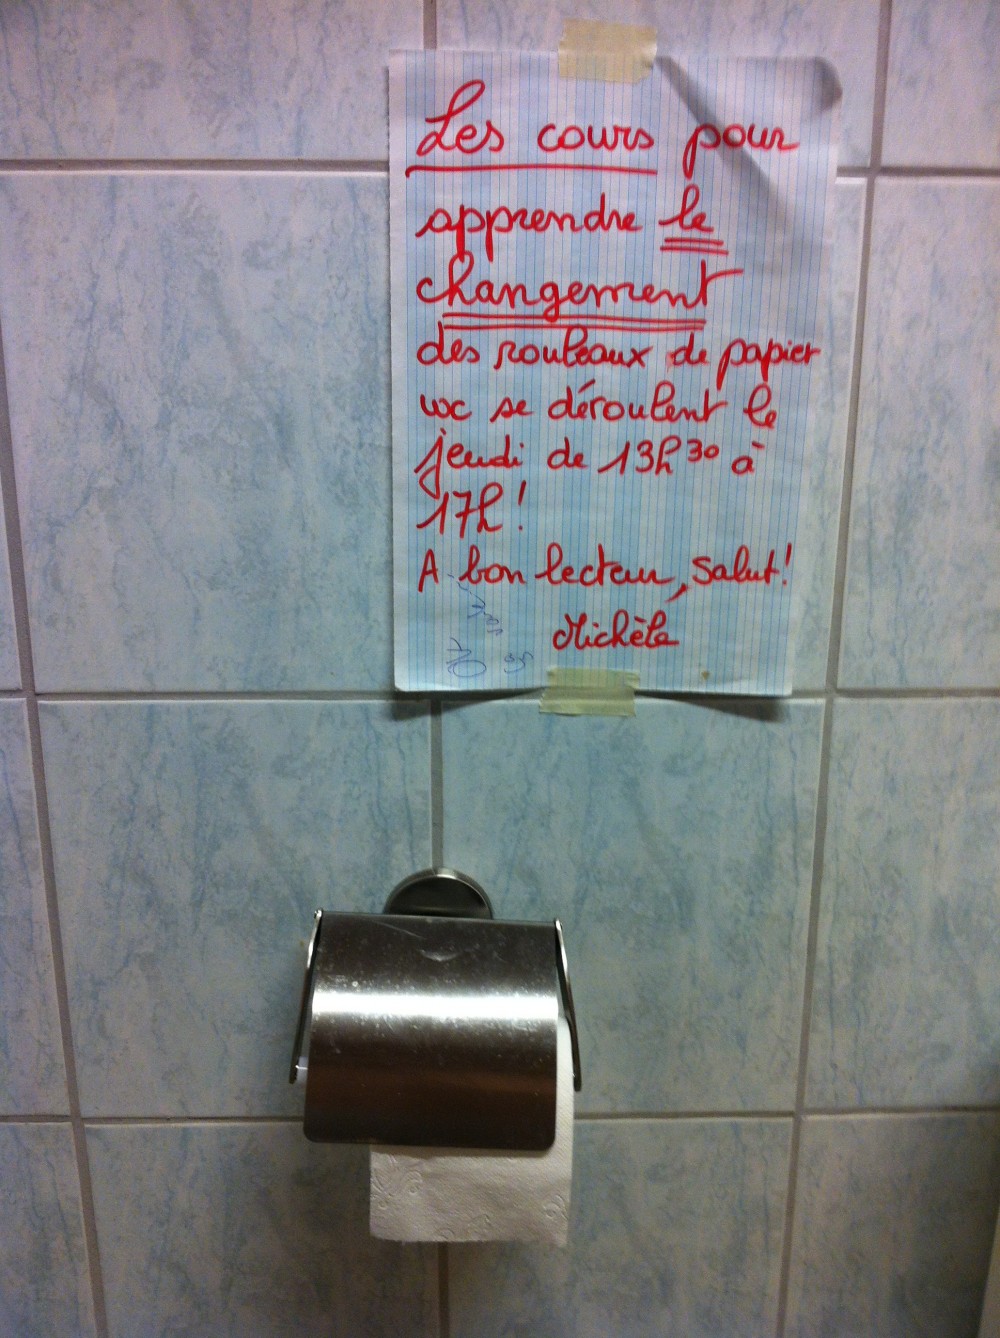 Les cours pour
apprendre le
changement
des rouleaux de papier
wc se déroulent le
jeudi de 13h30 à
17h!
A bon lecteur, salut!
Michèle